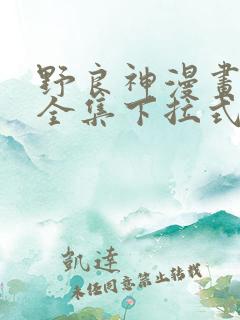 野良神漫畫
全集下拉式
凱達
未经同意禁止转载